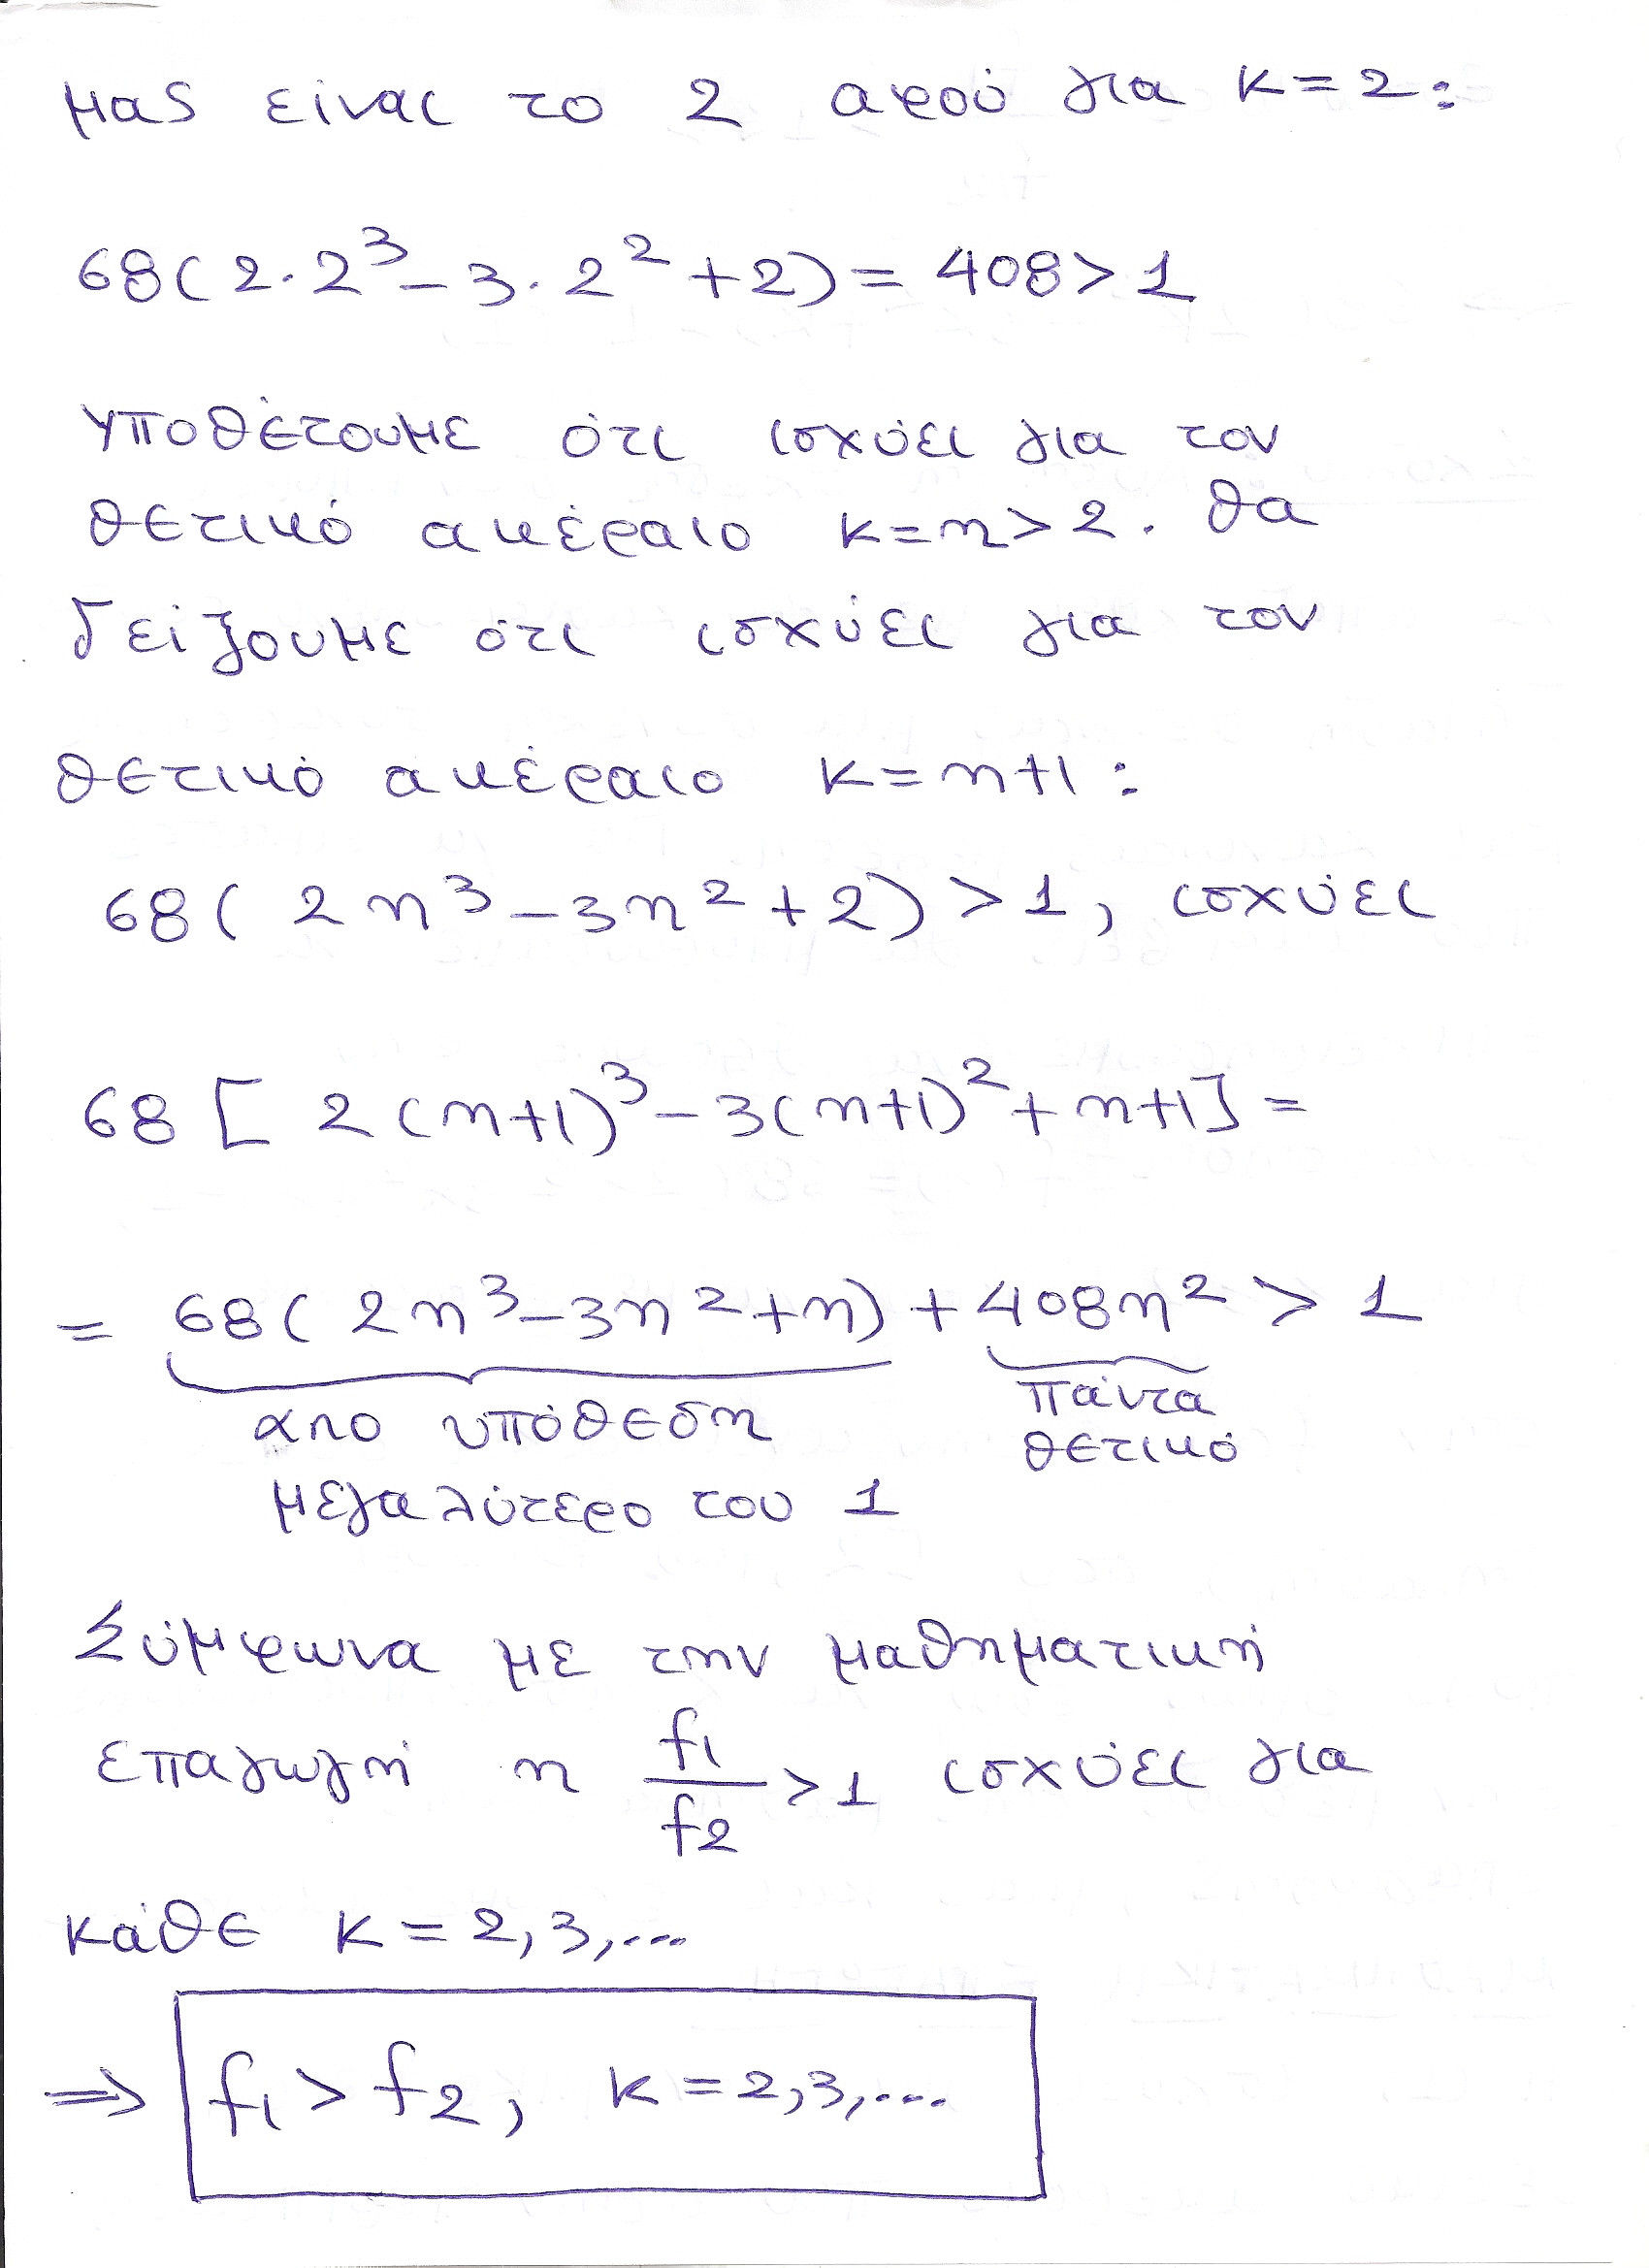 μας είναι το 2 αφού για κ=2:
68(2·2³-3·2²+2)=408>1
Υποθέτουμε ότι ισχύει για τον
θετικό ακέραιο κ=n>2. Θα
δείξουμε ότι ισχύει για τον
θετικό ακέραιο κ=n+1:
68(2n³-3n²+2)>1, ισχύει
68[2(n+1)³-3(n+1)²+n+1]=
=68(2n³-3n²+n)+408n²>1
από υπόθεση πάντα
μεγαλύτερο του 1 θετικό
Σύμφωνα με την μαθηματική
επαγωγή η f1/f2>1 ισχύει για
κάθε κ=2,3,...
⇒ f1>f2, κ=2,3,...